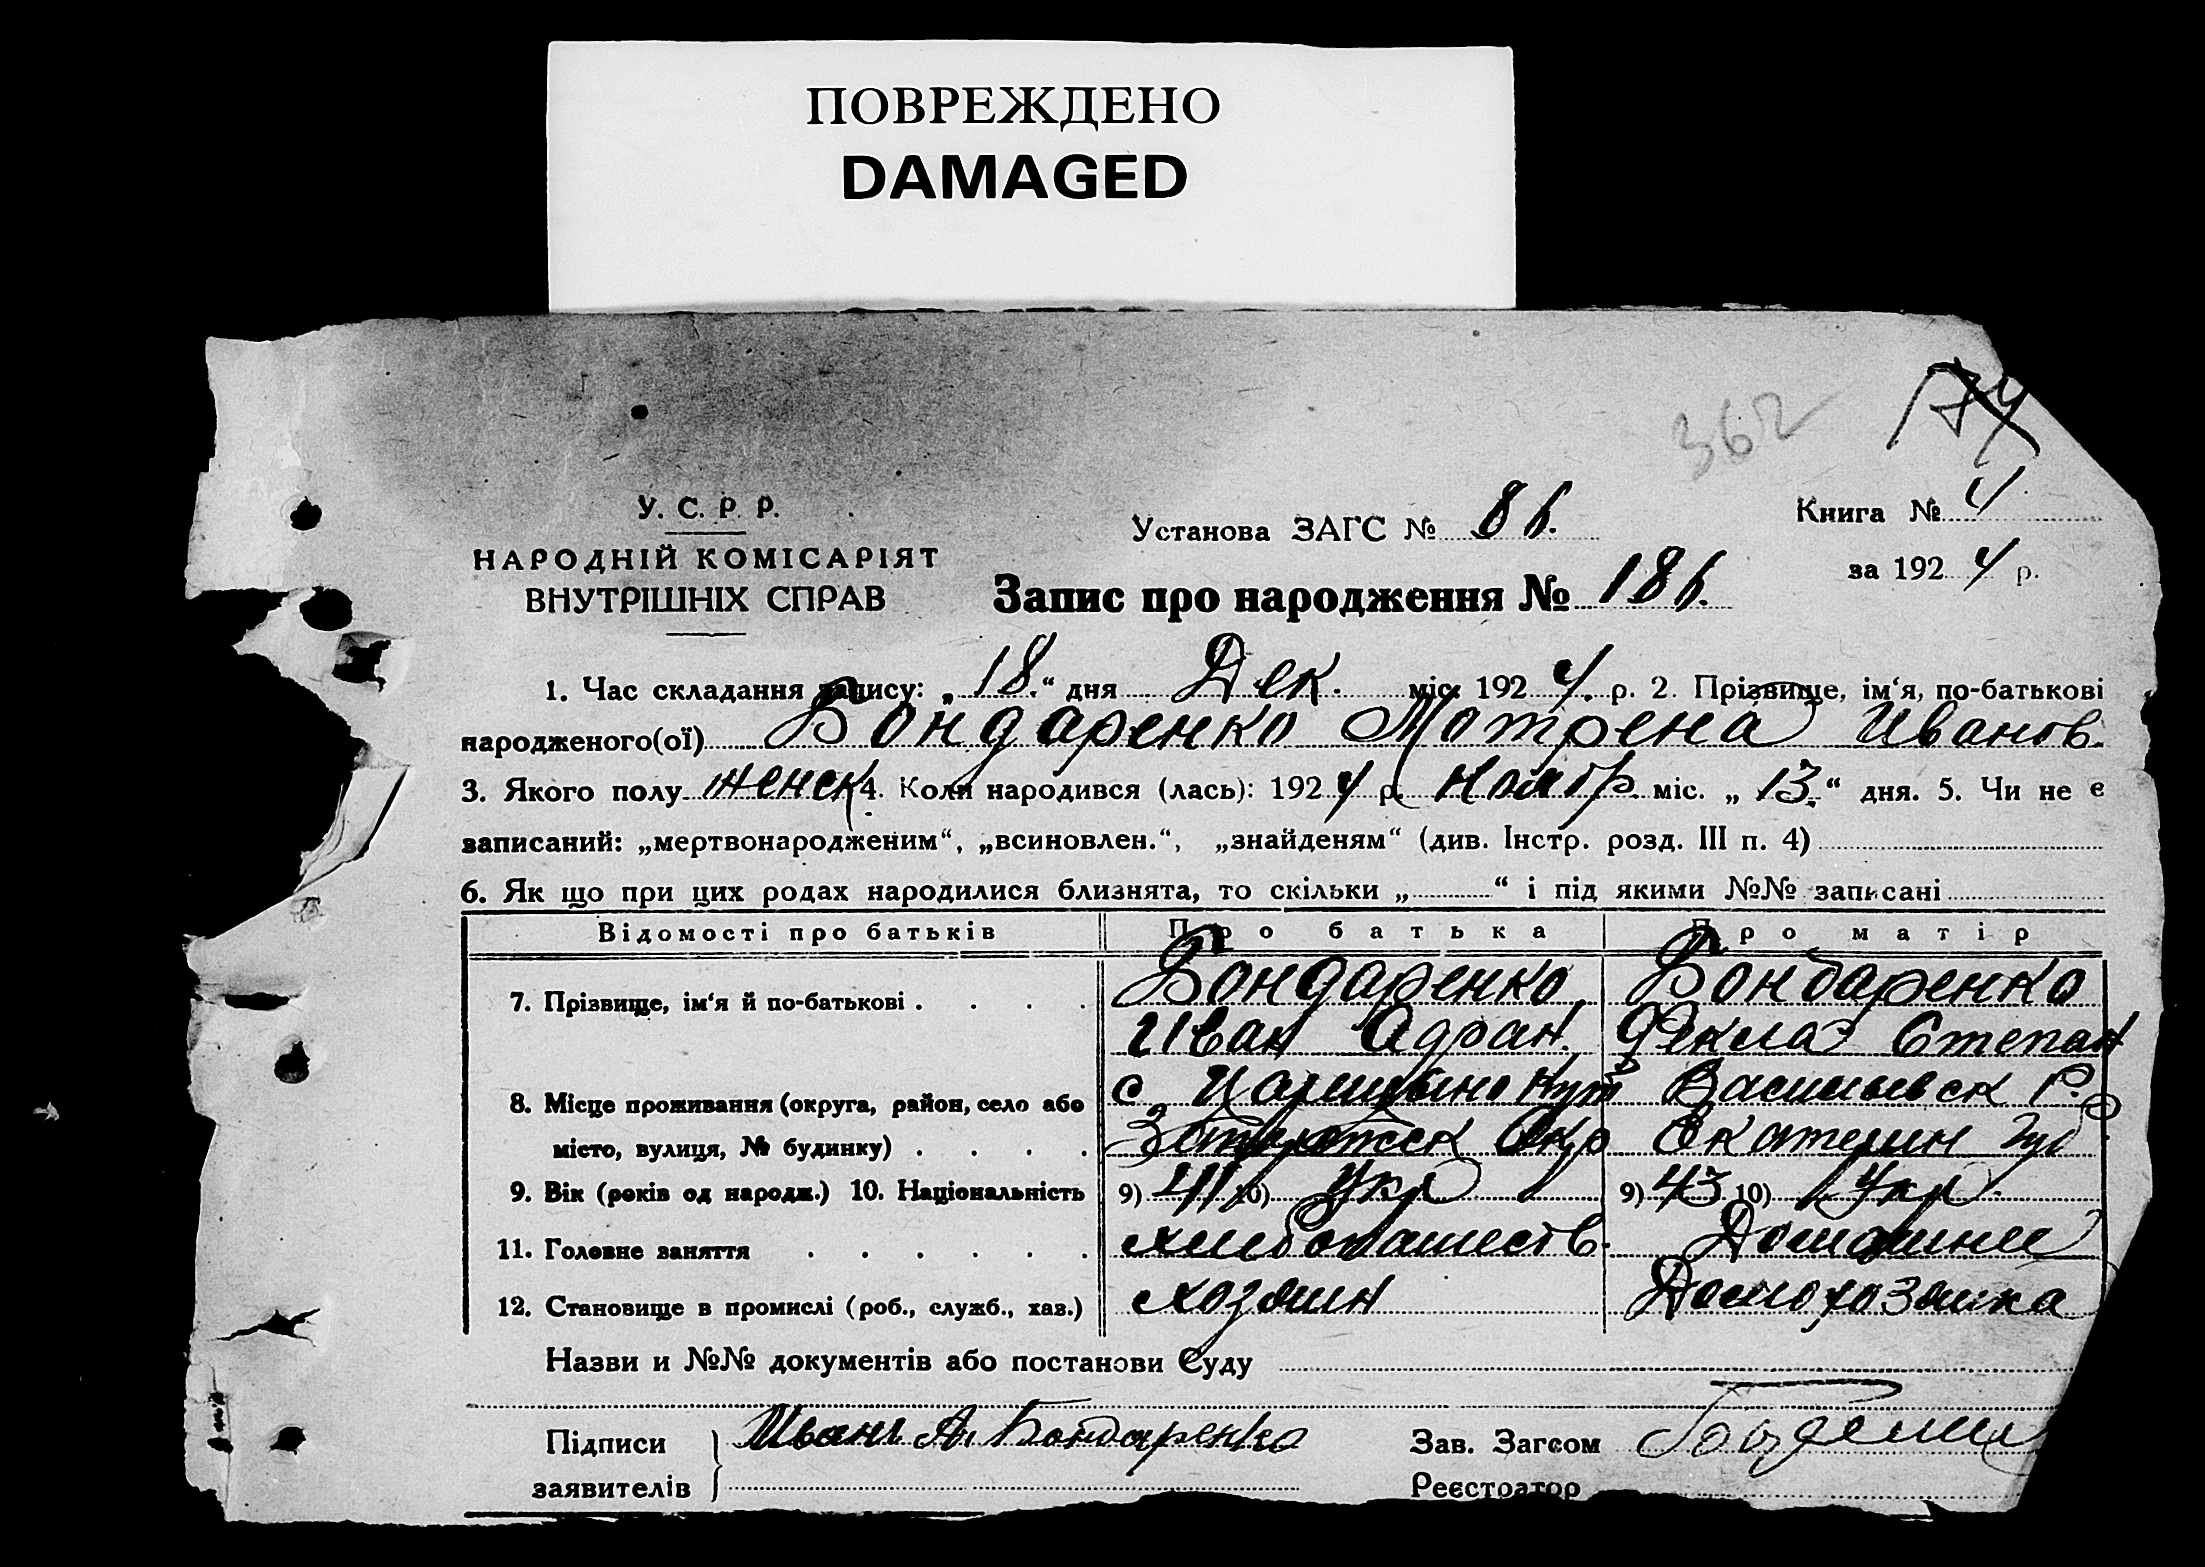 ПОВРЕЖДЕНО
DAMAGED
362
У. С. Р. Р.
НАРОДНІЙ КОМІСАРІЯТ
ВНУТРІШНІХ СПРАВ
Установа ЗАГС № 86.
Книга № 4
за 1924 р.
Запис про народження № 186.
1. Час складання запису: „18.“ дня Дек. міс. 1924. р. 2. Прізвище, ім‘я, по-батькові
народженого(ої) Бондаренко Мотрена Иванов.
3. Якого полу женск 4. Коли народився (лась): 1924 р. Ноябр. міс. „13.“ дня. 5. Чи не є
записаний: „мертвонародженим“, „всиновлен.“, „знайденям“ (див. Інстр. розд. III п. 4)
6. Як що при цих родах народилися близнята, то скільки „ “ і під якими №№ записані
Відомості про батьків Про батька Про матір
7. Прізвище, ім‘я й по-батькові . . . . Бондаренко Бондаренко
Иван Адриан. Фекла Степан
8. Місце проживання (округа, район, село або с Царицыно Кут Васильевск Р.
місто, вулиця, № будинку) . . . . Окр Екатерин Губ.
9. Вік (років од народж.) 10. Національність 9) 41 10) Укр 9) 43 10) Укр.
11. Головне заняття . . . . . . хлебопашеств.
12. Становище в промислі (роб., служб., хаз.) хозяин Домохозяйка
Назви и №№ документів або постанови Суду
Підписи Иван А. Бондаренко Зав. Загсом
заявителів Реєстратор